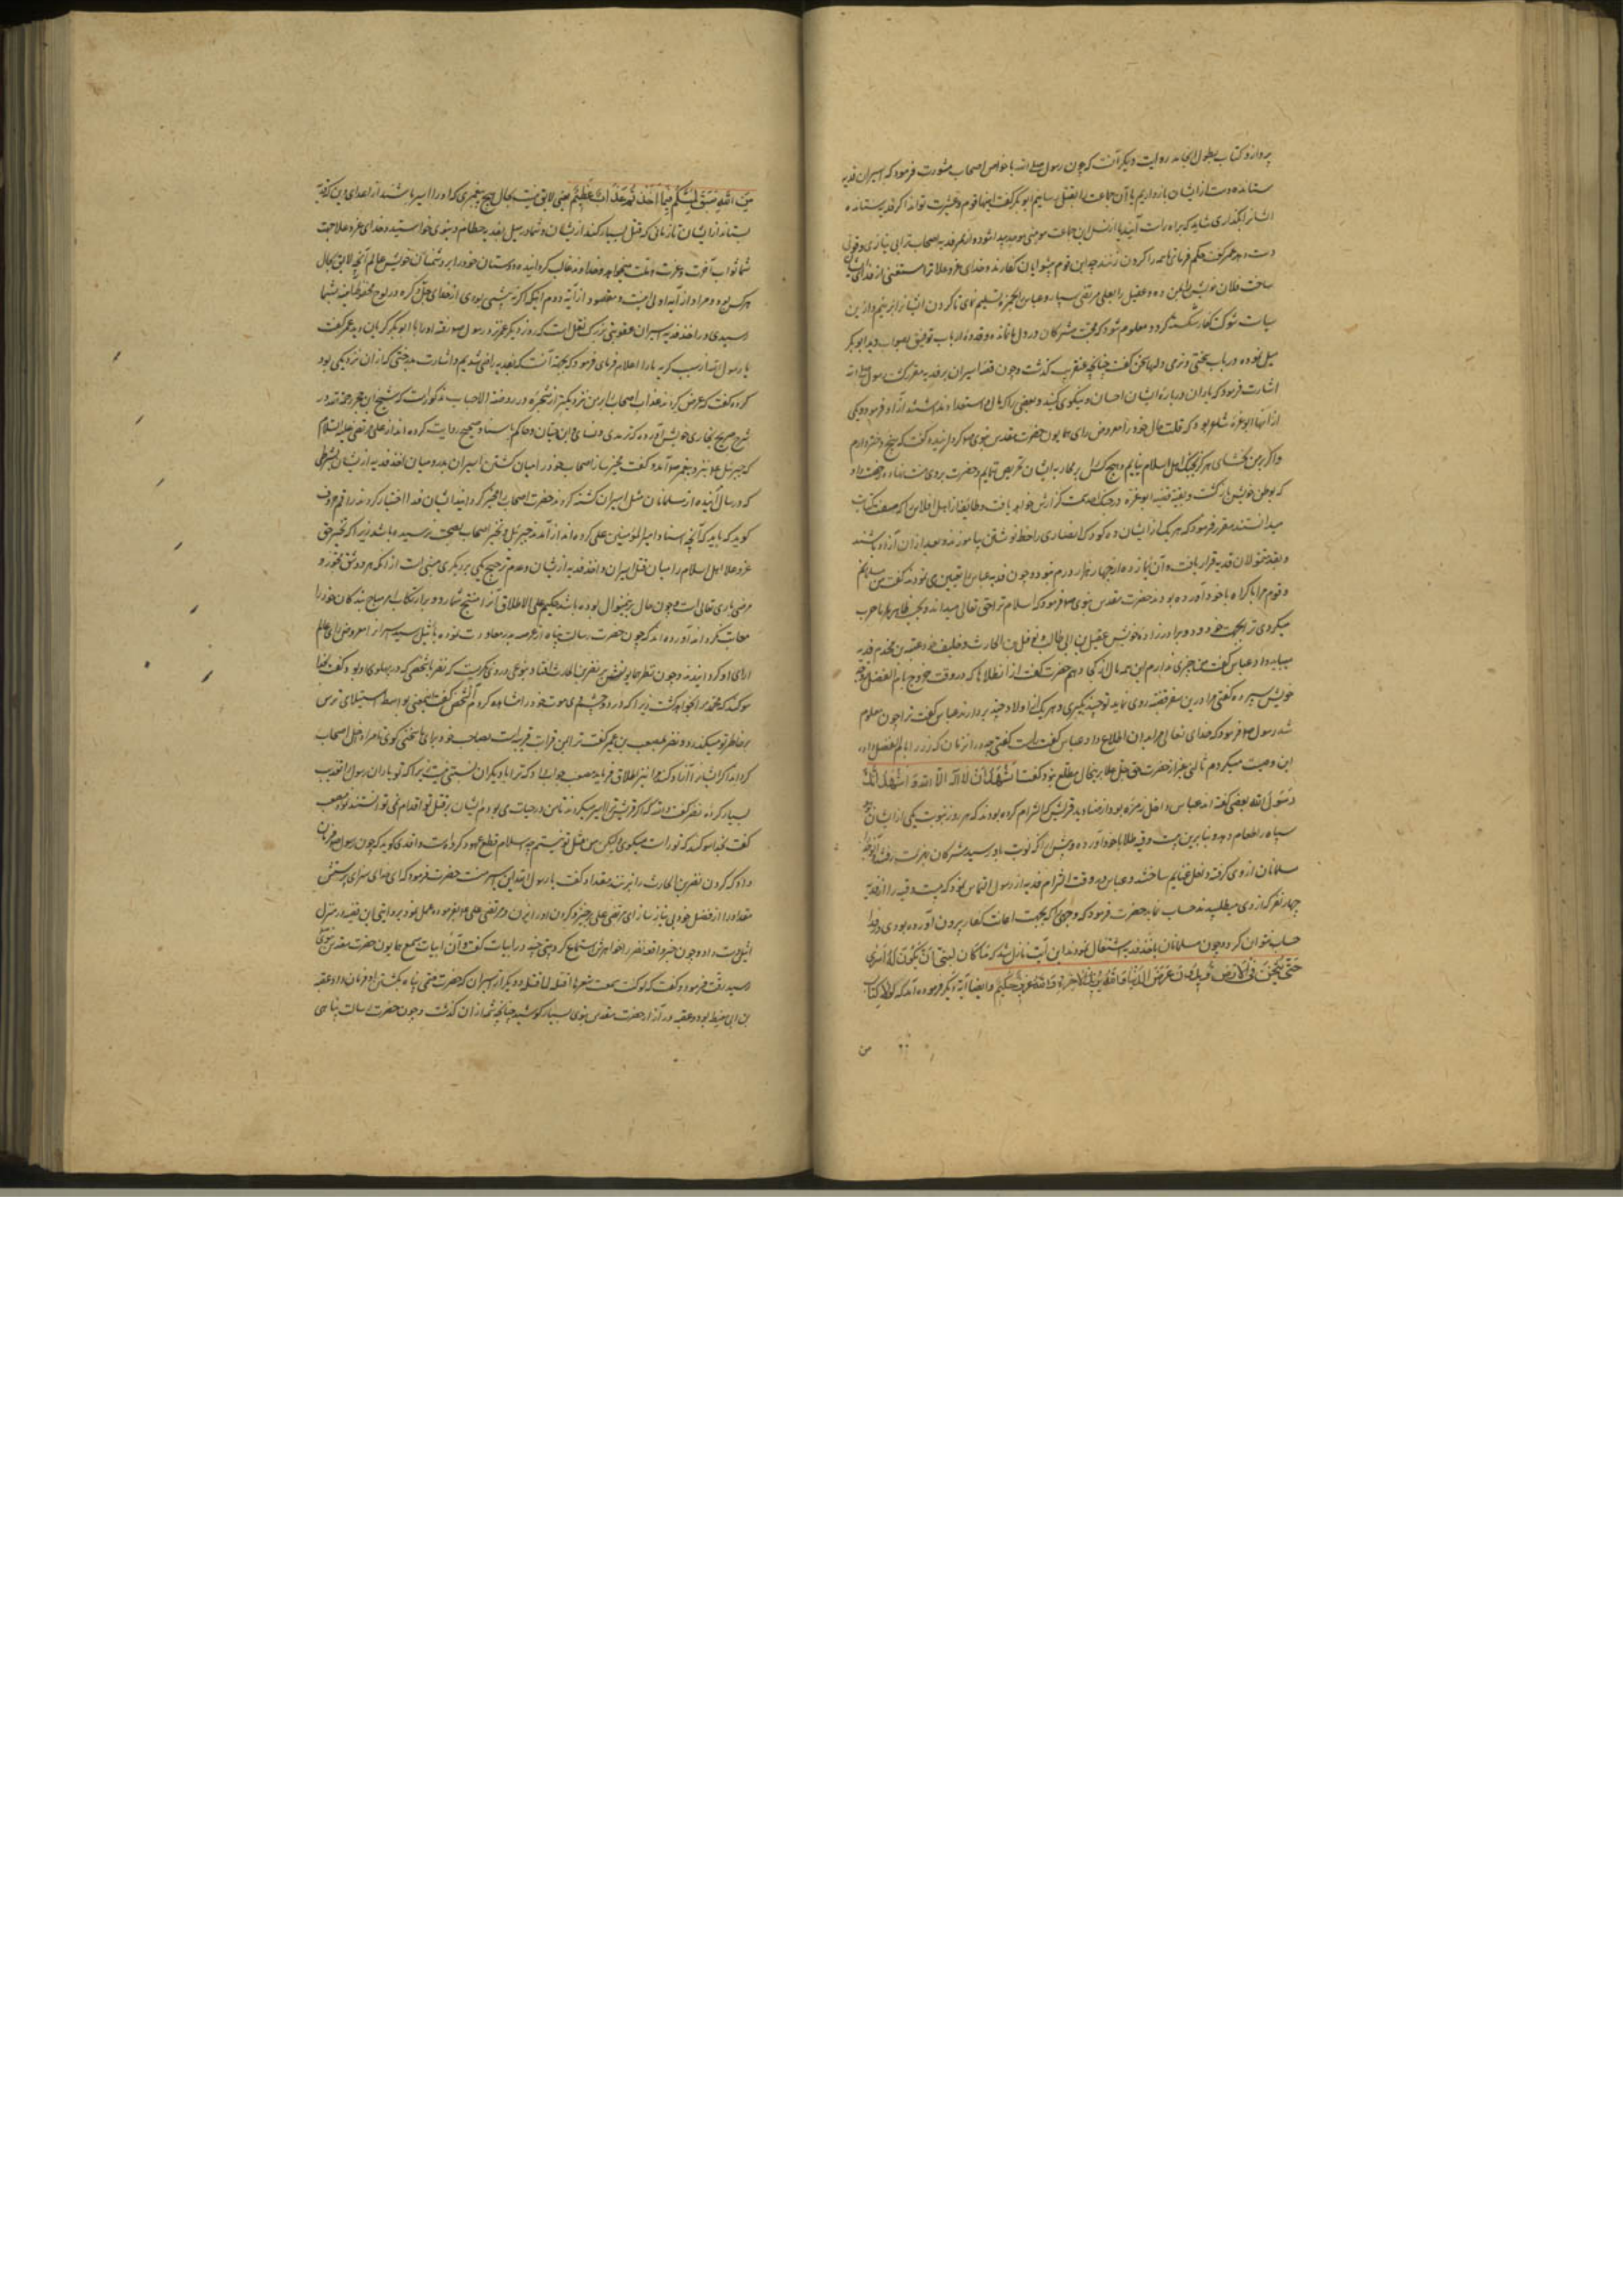 پردازد کتاب بطول انجامد روایت دیگر آنست که چون رسول صلی الله با خواص اصحاب مشورت فرمود که اسیران فدیه
ستانده دست از ایشان بازداریم یا آن جماعت را بقتل رسانیم ابوبکر گفت اینها قوم و عشیرت تواند اگر فدیه ستانده
ایشانرا بگذاری شاید که براه راست آیند یا از نسل این جماعت مومنی موحد پیدا شود و از ممر فدیه اصحاب ترا بی نیازی و قوتی
دست دهد عمر گفت حکم فرمای تا همه را گردن زنند چه این قوم پیشوایان کفارند و خدای عز و علا ترا مستغنی از فدای
ساخت فلان خویش را بمن ده و عقیل را بعلی مرتضی سپار و عباس را بحمزه تسلیم نمای تا گردن ایشانرا بزنیم و از این
سیاست شوکت کفار شکسته گردد و معلوم شود که محبت مشرکان در دل ما نمانده
میل نموده در باب سختی و نرمی دلها سخن گفت چنانچه عنقریب گذشت و چون قضا اسیران بر فدیه مقرر گشت رسول صلی الله
اشارت فرمود که یاران درباره ایشان احسان و نیکوی کنند و بعضی را که مال و استعداد نداشتند آزاد فرمود و یکی
از آنها ابوعزه شاعر بود که قلت مال خود را معروض رای همایون حضرت مقدس نبوی گردانیده گفت که پنج دختر دارم
و اگر بر من بخشای هرگز بجنگ اهل اسلام نیایم و هیچ کس را بر محاربه ایشان تحریص ننمایم و حضرت بر وی منت نهاده رخصت داد
که بوطن خویش بازگشت و بقیه قضیه ابوعزه در جنگ احد سمت گزارش خواهد یافت و طائفه از اهل افلاس را که صنعت کتابت
میدانستند مقرر فرمود که هر یک از ایشان ده کودک انصاری را خط نوشتن بیاموزند و بعد از آن آزاد باشند
و بقیه متمولان فدیه قرار یافت و آن زیاده از چهار هزار درم نبود و چون فدیه عباس را تعیین می نمودند گفت من مسلمانم
و قوم مرا باکراه با خود آورده بودند حضرت مقدس نبوی فرمود که اسلام ترا حق تعالی میداند و بحسب ظاهر با ما حرب
میکردی ترا بجهت خود و دو برادرزاده خویش عقیل بن ابی طالب و نوفل بن الحارث و حلیف خود عتبه بن محمد فدیه
میباید داد عباس گفت من چیزی ندارم این همه مال از کجا دهم حضرت گفت از آن طلاها که در وقت خروج بام الفضل زوجه
خویش سپرده گفتی مرا درین سفر قضیه روی نماید تو چندین بگیری و هر یک از اولاد چند بردارند عباس گفت ترا چون معلوم
شد رسول فرمود که خدای تعالی مرا بدان اطلاع داد عباس گفت راست گفتی چه در آن زمان که زر را بام الفضل داده
این وصیت میکردم ثالثی بغیر از حضرت حق جل و علا بر این حال مطلع نبود گفت اشهد ان لا اله الا الله و اشهد انک
رسول الله بعضی گفته اند عباس داخل زمره بود از صنادید قریش که التزام کرده بودند که هر روز بنوبت یکی از ایشان
سپاه را طعام دهد و بنابرین بیست وقیه طلا با خود آورده و پیش از آنکه نوبت باو رسید مشرکان بهزیمت رفتند
مسلمانان از وی گرفته داخل غنایم ساختند و عباس در وقت التزام فدیه از رسول التماس نمود که بیست وقیه را از فدیه
چهار نفر که از وی میطلبیدند حساب نماید حضرت فرمود که وجهی که بجهت اعانت کفار بیرون آورده بودی
حساب نتوان کرد و چون مسلمانان باخذ فدیه اشتغال نمودند این آیت نازل شد که ما کان لنبی ان یکون له اسری
حتی یثخن فی الارض تریدون عرض الدنیا والله یرید الاخرة والله عزیز حکیم و ایضا آیة دیگر فرموده آمد که لولا کتاب
من
من الله سبق لمسکم فیما اخذتم عذاب عظیم یعنی لایق نیست بحال هیچ پیغمبری که او را اسیر باشند از اعدای دین که فدیه
بستاند از ایشان تا زمانی که قتل بسیار کند از ایشان و شما در میل بفدیه حطام دنیوی خواستید و خدای عز و علا جهت
شما ثواب آخرت و عزت ملت میخواهد و خداوند غالب گرداننده دوستان خود را بر دشمنان خویش عالم آنچه لایق بحال
هر کس بود
رسیدی در اخذ فدیه اسیران عقوبتی بزرگ نقل است که روز دیگر عمر نزد رسول رفته او را با ابوبکر گریان دید عمر گفت
یا رسول الله از سبب گریه ما را اعلام فرمای فرمود که بجهة آنست که بفدیه راضی شدیم و اشارت بدرختی که از آن نزدیکی بود
کرده گفت که عرض کردند عذاب اصحاب را بر من نزدیکتر ازین شجره و در روضة الاحباب مذکور است که شیخ ابن حجر رحمه الله در
شرح صحیح بخاری خویش آورده که ترمدی و نسائی و ابن حبان و حاکم باسناد صحیح روایت کرده اند از علی مرتضی علیه السلام
که جبرئیل نزد پیغمبر آمد و گفت مخیر ساز اصحاب خود را میان کشتن اسیران بدر و میان اخذ فدیه از ایشان بشرطی
که در سال آینده از مسلمانان مثل اسیران کشته گردند حضرت اصحاب را مخیر گردانید ایشان فدا اختیار کردند راقم حروف
گوید که باید که آنچه اسناد بامیر المؤمنین علی کرده اند از آمدن جبرئیل و تخییر اصحاب بصحت نرسیده باشد زیرا که تخییر حق
عز و علا اهل اسلام را میان قتل اسیران و اخذ فدیه از ایشان و عدم ترجیح یکی بر دیگری مبنی است از آنکه هر دو شق تجویز و
مرضی باری تعالی است و چون حال برین منوال بوده باشد حکیم علی الاطلاق آنرا مستقبح شمارد و بر ارتکاب امر مباح بندگان خود را
معاتب گرداند آورده اند که چون حضرت رسالت پناه از عرصه بدر معاودت نموده باثیل رسید اسیران را معروض رای عالم
ارای او گردانیدند و چون نظر همایونش بر نضر بن الحارث افتاد بنوعی در وی نگریست که نضر با شخصی که در پهلوی او بود گفت بخدا
سوگند که محمد مرا بخواهد کشت زیرا که در دو چشم وی موت خود را مشاهده کردم آن شخص گفت این معنی بواسطه استیلای ترس
بر خاطر تو میگذرد و نضر بمصعب بن عمیر گفت ترا بمن قرابت قریبه است بصاحب خود بجای ما سخنی گوی تا مرا داخل اصحاب
گرداند اگر ایشانرا آزاد کند مرا نیز اطلاق فرماید مصعب جواب داد که ترا با دیگران نسبتی نیست زیرا که تو یاران رسول را تعذیب
بسیار کرده نضر گفت والله که اگر قریش ترا اسیر میکردند تا من در حیات می بودم ایشان بر قتل تو اقدام نمی توانستند نمود مصعب
گفت بخدا سوگند که تو راست میگوی ولیکن من مثل تو نیستم چه اسلام قطع عهود کرده است واقدی گوید که چون رسول فرمان
داد که گردن نضر بن الحارث را بزنند مقداد گفت یا رسول الله این اسیر منست حضرت فرمود که ای خدای سزای پرستش
مقداد را از فضل خود بی نیاز ساز ای مرتضی علی برخیز و گردن او را بزن و مرتضی علی بفرموده عمل نمود بروایتی این قضیه در منزل
اثیل دست داد و چون خبر واقعه نضر را خواهرش استماع کرد بیتی چند در ابیات گفت و آن ابیات بسمع همایون حضرت مقدس نبوی
رسید رقت فرمود و گفت که اگر
بن ابی معیط بود و عقبه در آزار حضرت مقدس نبوی بسیار کوشید چنانچه شمه از آن گذشت و چون حضرت رسالت پناهی